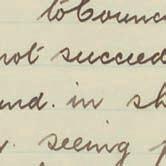 to Counc
not succeed
und. in sh
. seeing